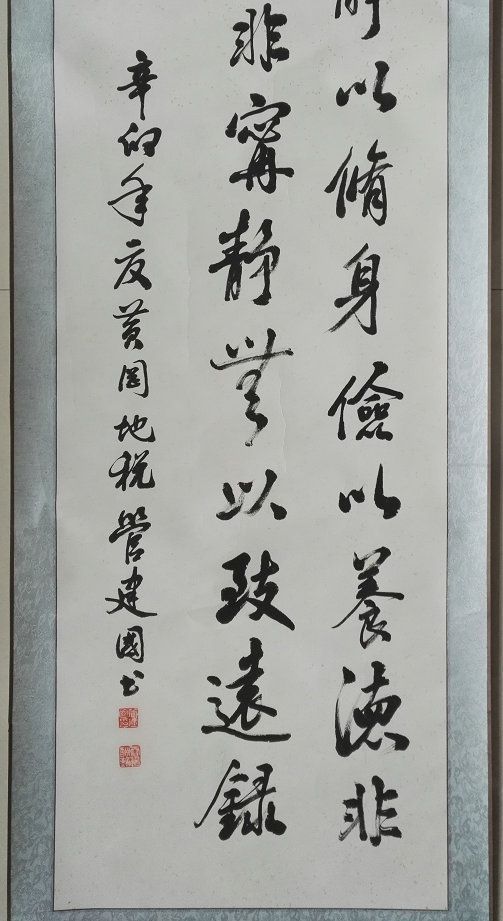 以脩身儉以養德非
非寧靜無以致遠錄
辛卯年夏黄岡地税管建國书